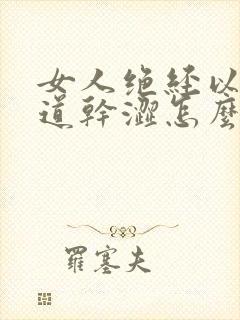 女人绝经以
道幹澀怎麼
羅塞夫